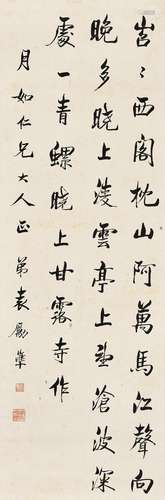 岧々西閣枕山阿萬馬江聲向
晚多曉上淩雲亭上望滄波深
處一青螺曉上甘露寺作
月如仁兄大人正弟袁勵準